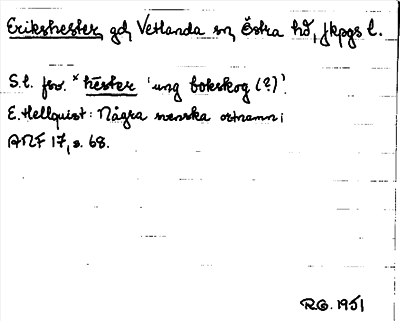 Erikshester gd, Vetlanda sn, Östra hd, Jkpgs l.
S.l. fsv. *hester 'ung bokskog (?)'.
E. Hellquist: Några svenska ortnamn i
ANF 17, s. 68.
R.G. 1951